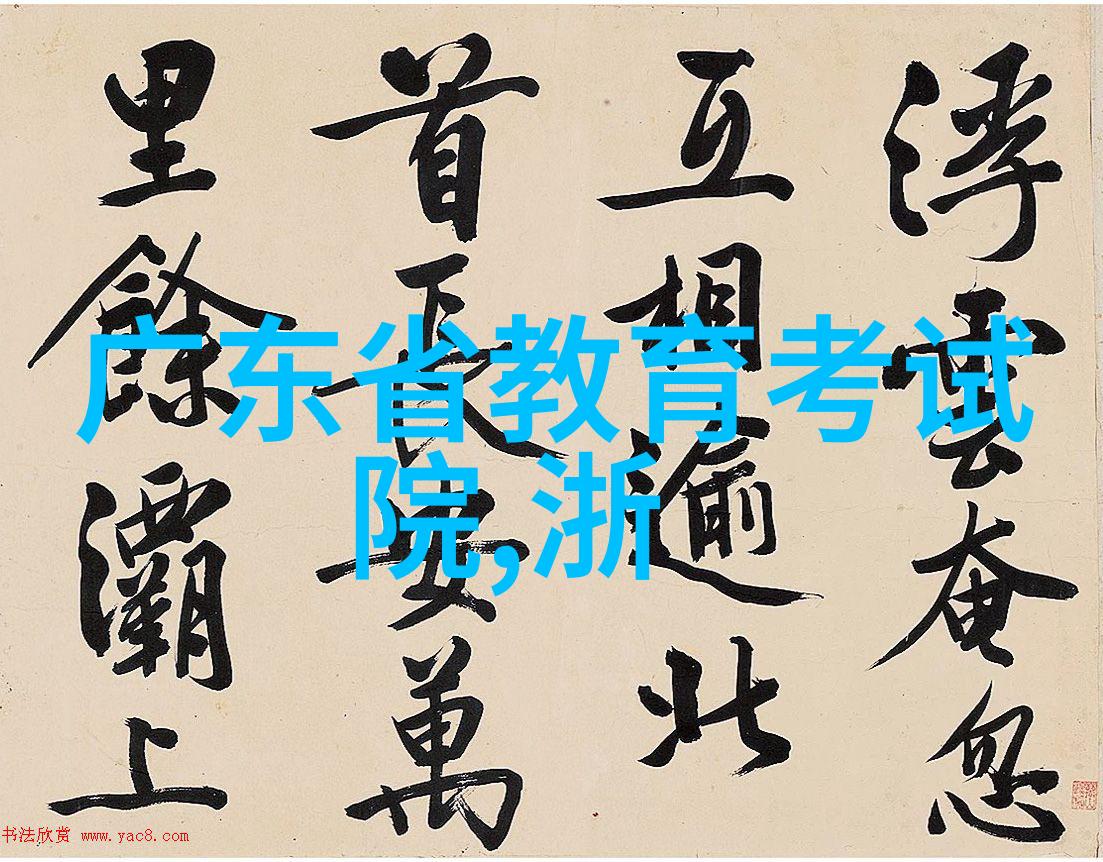 浮雲奄忽
互相逾北
首長安萬
里餘灞上
广东省教育考试
院,浙
书法欣赏 www.yac8.com